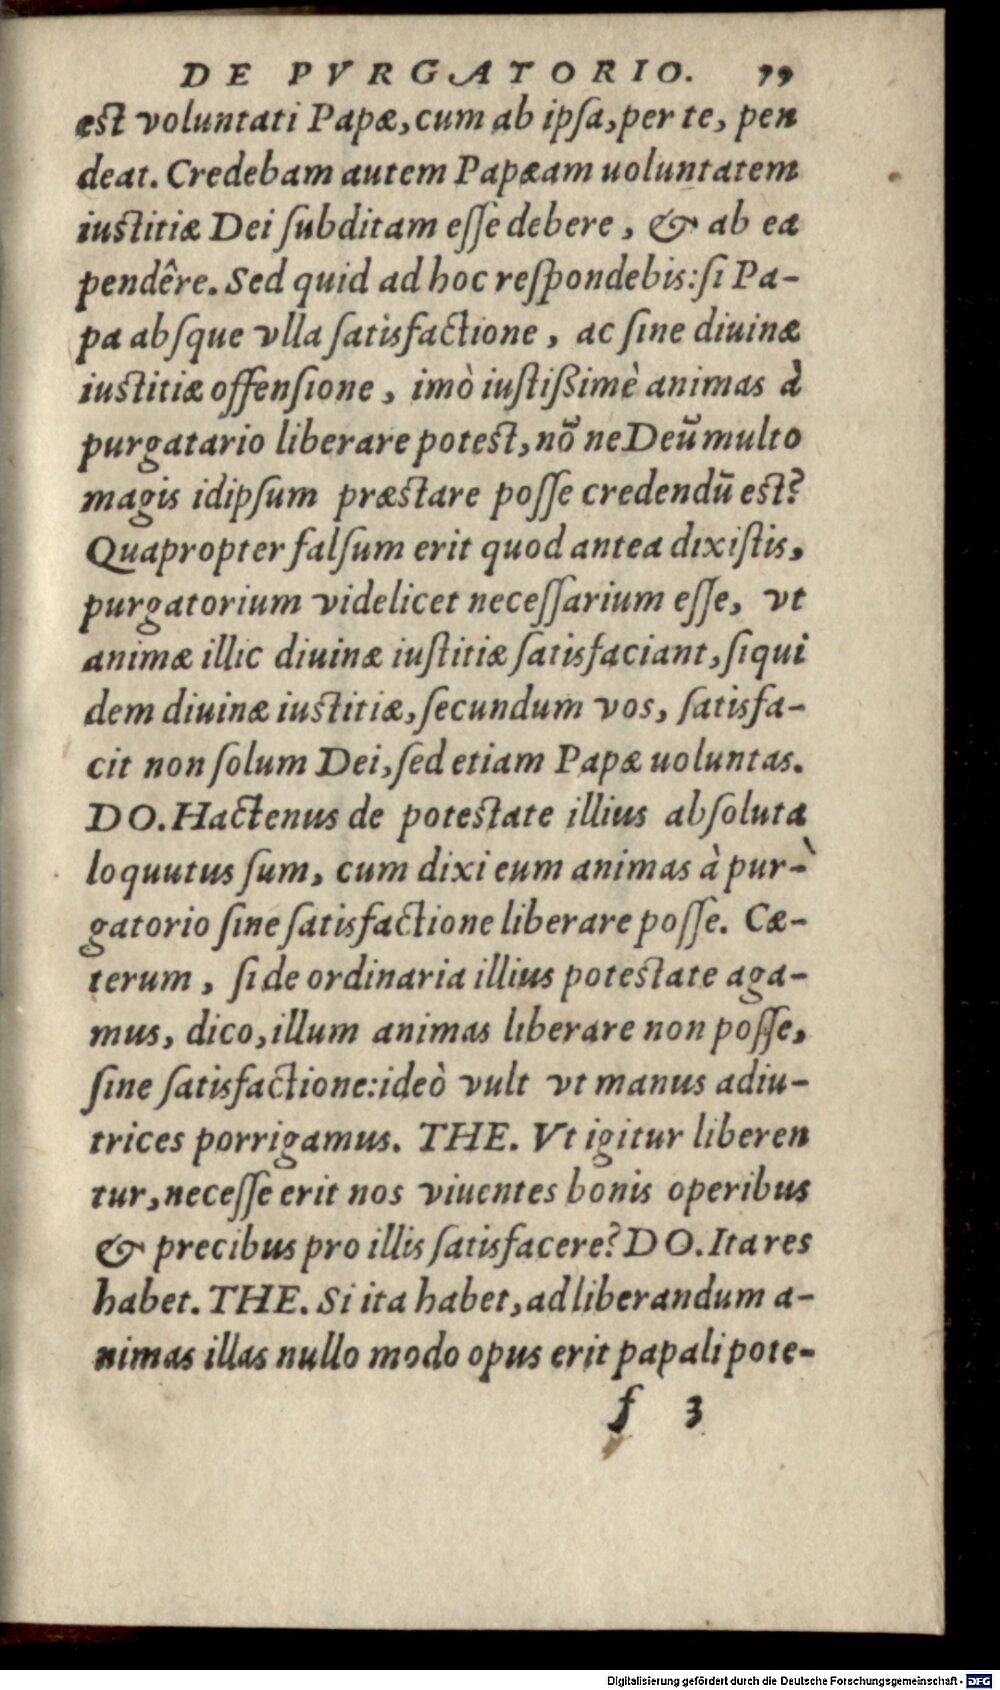 DE PVRGATORIO. 79
est voluntati Papæ, cum ab ipſa, per te, pen
deat. Credebam autem Papæam uoluntatem
iustitiæ Dei ſubditam eſſe debere, & ab ea
pendêre. Sed quid ad hoc reſpondebis: ſi Pa-
pa abſque vlla ſatisfactione, ac ſine diuinæ
iustitiæ offenſione, imò iuſtißimè animas à
purgatario liberare potest, nõ ne Deũ multo
magis idipſum præstare poſſe credendũ est?
Quapropter falſum erit quod antea dixiſtis,
purgatorium videlicet neceſſarium eſſe, vt
animæ illic diuinæ iuſtitiæ ſatisfaciant, ſiqui
dem diuinæ iustitiæ, ſecundum vos, ſatisfa-
cit non ſolum Dei, ſed etiam Papæ uoluntas.
DO. Hactenus de potestate illius abſoluta
loquutus ſum, cum dixi eum animas à pur-
gatorio ſine ſatisfactione liberare poſſe. Cæ-
terum, ſi de ordinaria illius potestate aga-
mus, dico, illum animas liberare non poſſe,
ſine ſatisfactione: ideò vult vt manus adiu-
trices porrigamus. THE. Vt igitur liberen
tur, neceſſe erit nos viuentes bonis operibus
& precibus pro illis ſatisfacere? DO. Ita res
habet. THE. Si ita habet, ad liberandum a-
nimas illas nullo modo opus erit papali pote-
f 3
Digitalisierung gefördert durch die Deutsche Forschungsgemeinschaft - DFG